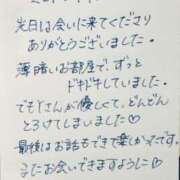 先日は会いに来てくださり
ありがとうございました。
薄暗いお部屋で、ずっと
ドキドキしていました。
でもYさんが優しくて、どんどん
とろけてしまいました♡
最後はお話もできて楽しかったです。
またお会いできますように♡